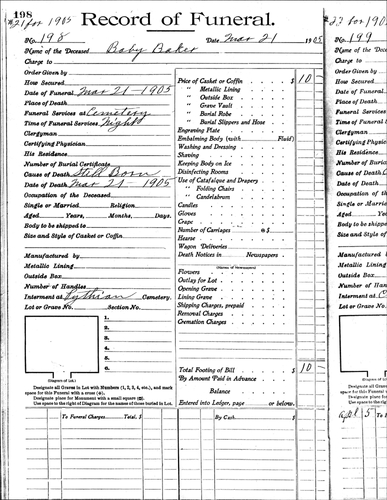 198
21 for 1905
Record of Funeral.
No. 198 Date Mar 21 1905
Name of the Deceased Baby Baker
Charge to
Order Given by
How Secured
Date of Funeral Mar 21 - 1905
Place of Death
Funeral Services at Cemetery
Time of Funeral Services Night
Clergyman
Certifying Physician
His Residence
Number of Burial Certificate
Cause of Death Still Born
Date of Death Mar 21 - 1905
Occupation of the Deceased
Single or Married Religion
Aged Years, Months, Days.
Body to be shipped to
Size and Style of Casket or Coffin
Manufactured by
Metallic Lining
Outside Box
Number of Handles
Interment at Pythian Cemetery.
Lot or Grave No. Section No.
1.
2.
3.
4.
5.
6.
(Diagram of Lot.)
Designate all Graves in Lot with Numbers (1, 2, 3, 4, etc.), and mark
space for this Funeral with a cross (x).
Designate place for Monument with a small square (□).
Use space to the right of Diagram for the names of those buried in Lot.
Price of Casket or Coffin $ 10 -
" Metallic Lining
" Outside Box
" Grave Vault
" Burial Robe
" Burial Slippers and Hose
Engraving Plate
Embalming Body (with Fluid)
Washing and Dressing
Shaving
Keeping Body on Ice
Disinfecting Rooms
Use of Catafalque and Drapery
" Folding Chairs
" Candelabrum
Candles
Gloves
Crape
Number of Carriages @ $
Hearse
Wagon Deliveries
Death Notices in Newspapers
(Names of Newspapers)
Flowers
Outlay for Lot
Opening Grave
Lining Grave
Shipping Charges, prepaid
Removal Charges
Cremation Charges
Total Footing of Bill $ 10 -
By Amount Paid in Advance
Balance
Entered into Ledger, page or below.
To Funeral Charges Total, $ By Cash. $
22 for 1905
No. 199
Name of the Deceased
Charge to
Order Given by
How Secured
Date of Funeral
Place of Death
Funeral Services at
Time of Funeral Services
Clergyman
Certifying Physician
His Residence
Number of Burial
Cause of Death
Date of Death
Occupation of the
Single or Married
Aged
Body to be shipped
Size and Style of
Manufactured by
Metallic Lining
Outside Box
Number of Handles
Interment at
Lot or Grave No.
(Diagram of Lot.)
Designate all
space for this Fun
Designate pla
Use space to th
Apl 5 To Fun